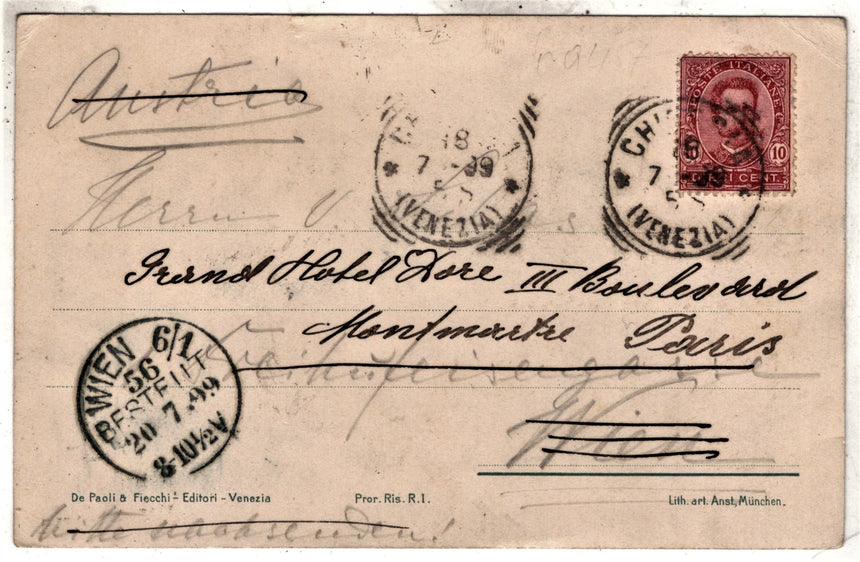 Austria
Herrn v.
Grand Hotel Dore III Boulevard
Montmartre Paris
Wien
bitte nachsenden!
18
7 - 99
(VENEZIA)
POSTE ITALIANE
10
CENT.
CHI
18
7 - 99
(VENEZIA)
WIEN 6/1
56
BESTELLT
20 7 99
8-10½V
De Paoli & Fiecchi - Editori - Venezia
Pror. Ris. R.I.
Lith. art. Anst, München.